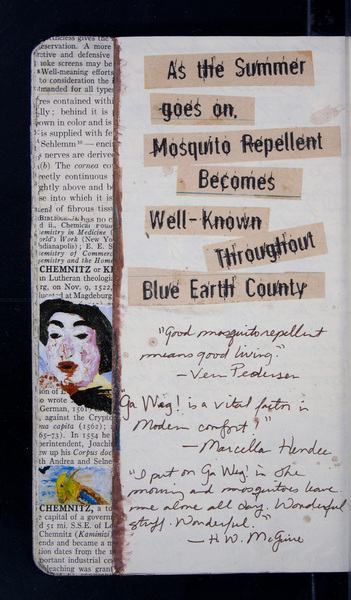 eservation. A more
tive and defensive
oke screens may be
Well-meaning efforts
to consideration the
manded for all types
res contained within
lly; behind it is
own in color and is
is supplied with fe
Schlemm
nerves are derive
(b) The cornea co
rectly continuous
ghtly above and be
se into which it is
end of fibrous tissu
CHEMNITZ or K
n Lutheran theologia
rg, on Nov. 9, 1522,
at Magdeburg
o wrote
German, 1561)
against the Crypto
ma capita (1562);
65–73). In 1554 he
perintendent, Joachi
ew up his Corpus doct
th Andrea and Selne
CHEMNITZ, a to
e capital of a govern
d 51 mi. S.S.E. of Le
Chemnitz (Kaminizi
ends and became a m
ion dates from the n
portant industrial cen
bleaching was grant
As the Summer
goes on,
Mosquito Repellent
Becomes
Well-Known
Throughout
Blue Earth County
"Good mosquito repellent
means good living."
— Vern Pedersen
"Ga Way! is a vital factor in
Modern comfort!"
— Marcella Hendee
"I put on Ga Way! in the
morning and mosquitoes leave
me alone all day. Wonderful
stuff. Wonderful."
— H. W. McGuire